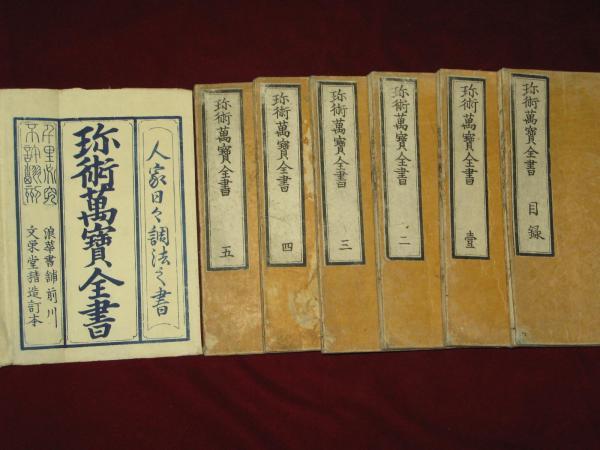 珎術萬寶全書 目録
珎術萬寶全書 壹
珎術萬寶全書 二
珎術萬寶全書 三
珎術萬寶全書 四
珎術萬寶全書 五
人家日々調法之書
珎術萬寶全書
千里必究
不許翻刻
浪華書舗前川
文栄堂造訂本